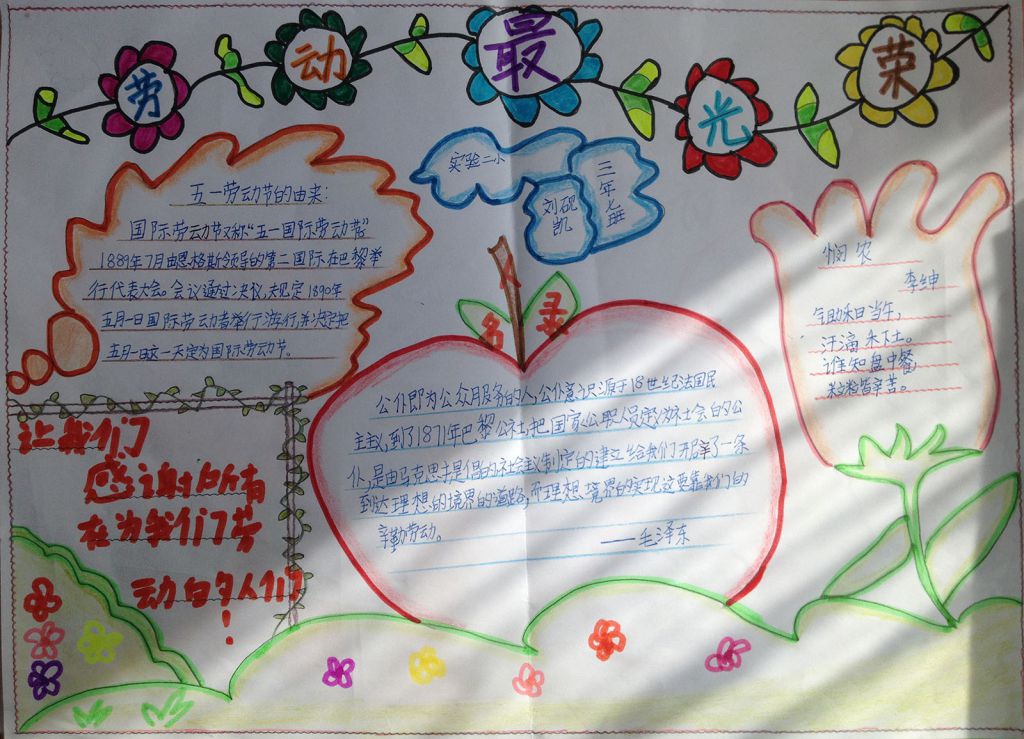 劳动最光荣
实验二小
三年七班
刘砚凯
五一劳动节的由来:
国际劳动节又称“五一国际劳动节”
1889年7月由恩格斯领导的第二国际在巴黎举
行代表大会。会议通过决议,规定1890年
五月一日国际劳动者举行游行,并决定把
五月一日这一天定为国际劳动节。
悯农
李绅
锄禾日当午,
汗滴禾下土。
谁知盘中餐
粒粒皆辛苦。
名人录
公仆即为公众服务的人,公仆意识源于18世纪法国民
主主义,到了1871年巴黎公社,把国家公职人员定义为社会的公
仆,是由马克思主义倡的社会主义制定的建立给我们开辟了一条
到达理想的境界的道路,而理想境界的实现这要靠我们的
辛勤劳动。
——毛泽东
让我们
感谢所有
在为我们劳
动的人们
!